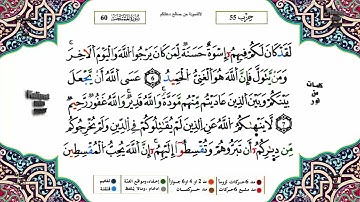 حزب 55
لا تنسونا من صالح دعائكم
60
لَقَدۡ كَانَ لَكُمۡ فِيهِمُۥٓ إِسۡوَةٌ حَسَنَةٞ لِّمَن كَانَ يَرۡجُواْ اللَّهَ وَالۡيَوۡمَ الۡأٓخِرَۚ
وَمَن يَتَوَلَّ فَإِنَّ اللَّهَ هُوَ الۡغَنِيُّ الۡحَمِيدُ ٦ عَسَى اللَّهُ أَن يَجۡعَلَ
بَيۡنَكُمۡ وَبَيۡنَ الَّذِينَ عَادَيۡتُم مِّنۡهُم مَّوَدَّةٗۚ وَاللَّهُ قَدِيرٞۚ وَاللَّهُ غَفُورٞ رَّحِيمٞ
٧ لَّا يَنۡهَىٰكُمُ اللَّهُ عَنِ الَّذِينَ لَمۡ يُقَٰتِلُوكُمۡ فِي الدِّينِ وَلَمۡ يُخۡرِجُوكُم
مِّن دِيَٰرِكُمُۥٓ أَن تَبَرُّوهُمۡ وَتُقۡسِطُوٓاْ إِلَيۡهِمُۥٓۚ إِنَّ اللَّهَ يُحِبُّ الۡمُقۡسِطِينَ